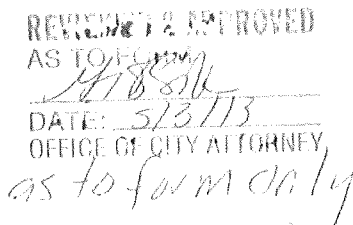 REVIEWED & APPROVED
AS TO FORM
DATE: 5/3/13
OFFICE OF CITY ATTORNEY
as to form only